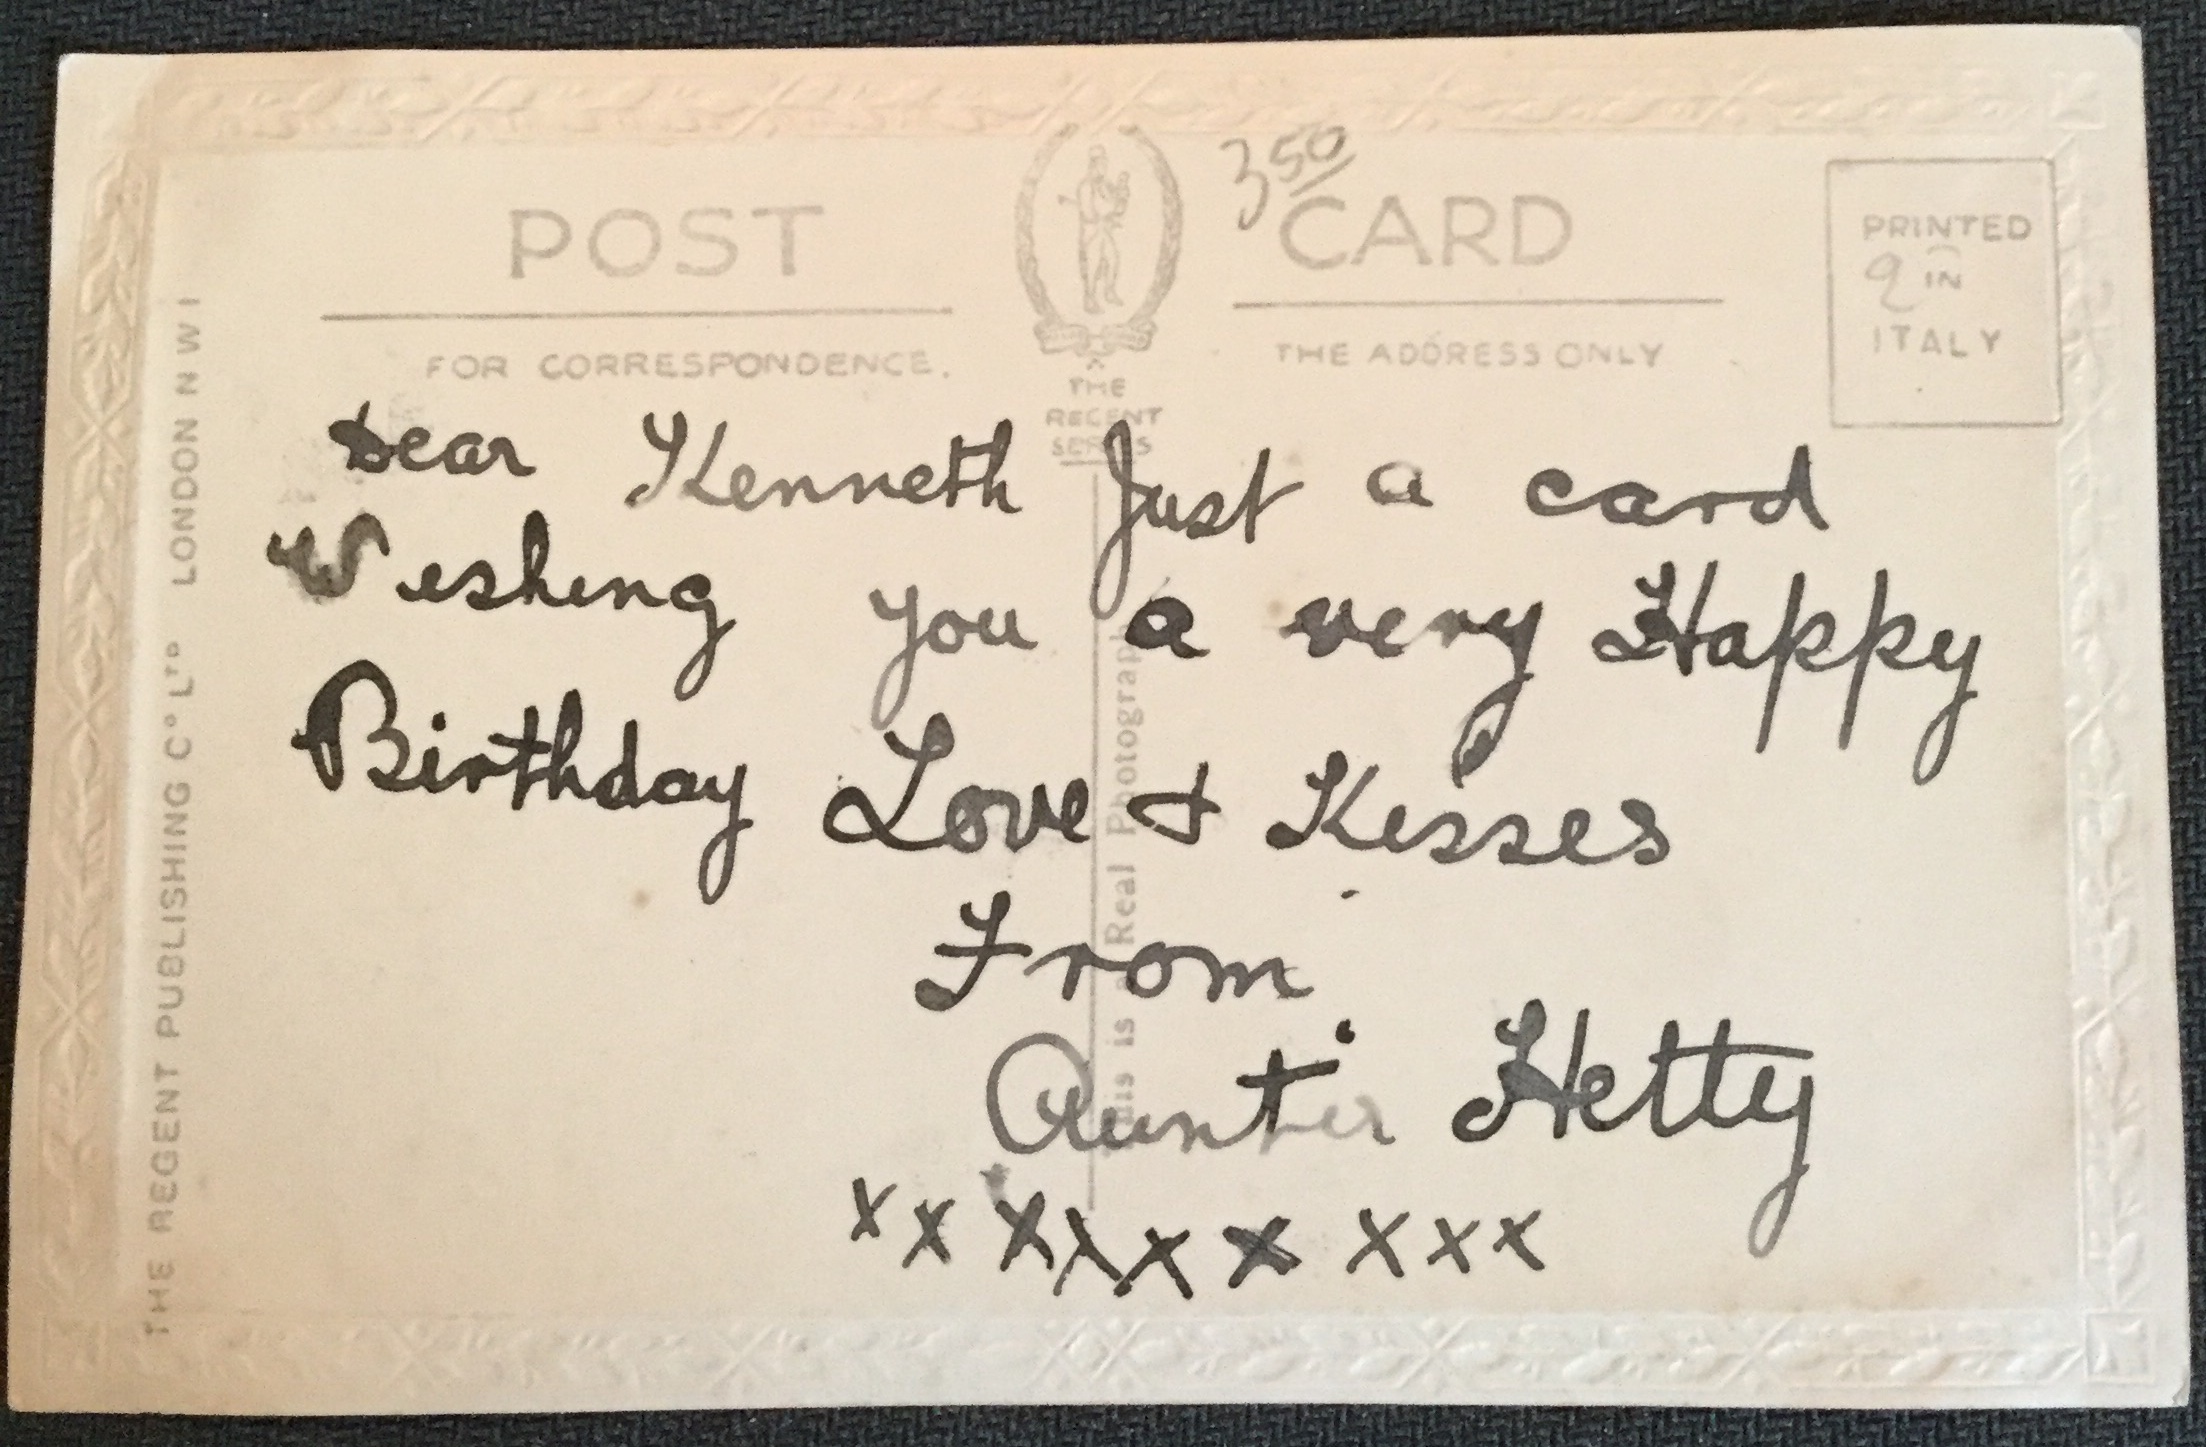 POST CARD
350
PRINTED
2 IN
ITALY
FOR CORRESPONDENCE.
THE ADDRESS ONLY
THE
REGENT
SERIES
Dear Kenneth Just a card
Wishing you a very Happy
Birthday Love & Kisses
From
Auntie Hetty
x x x x x x x x x
This is a Real Photograph
THE REGENT PUBLISHING Cº Lᵀᴰ LONDON N W 1